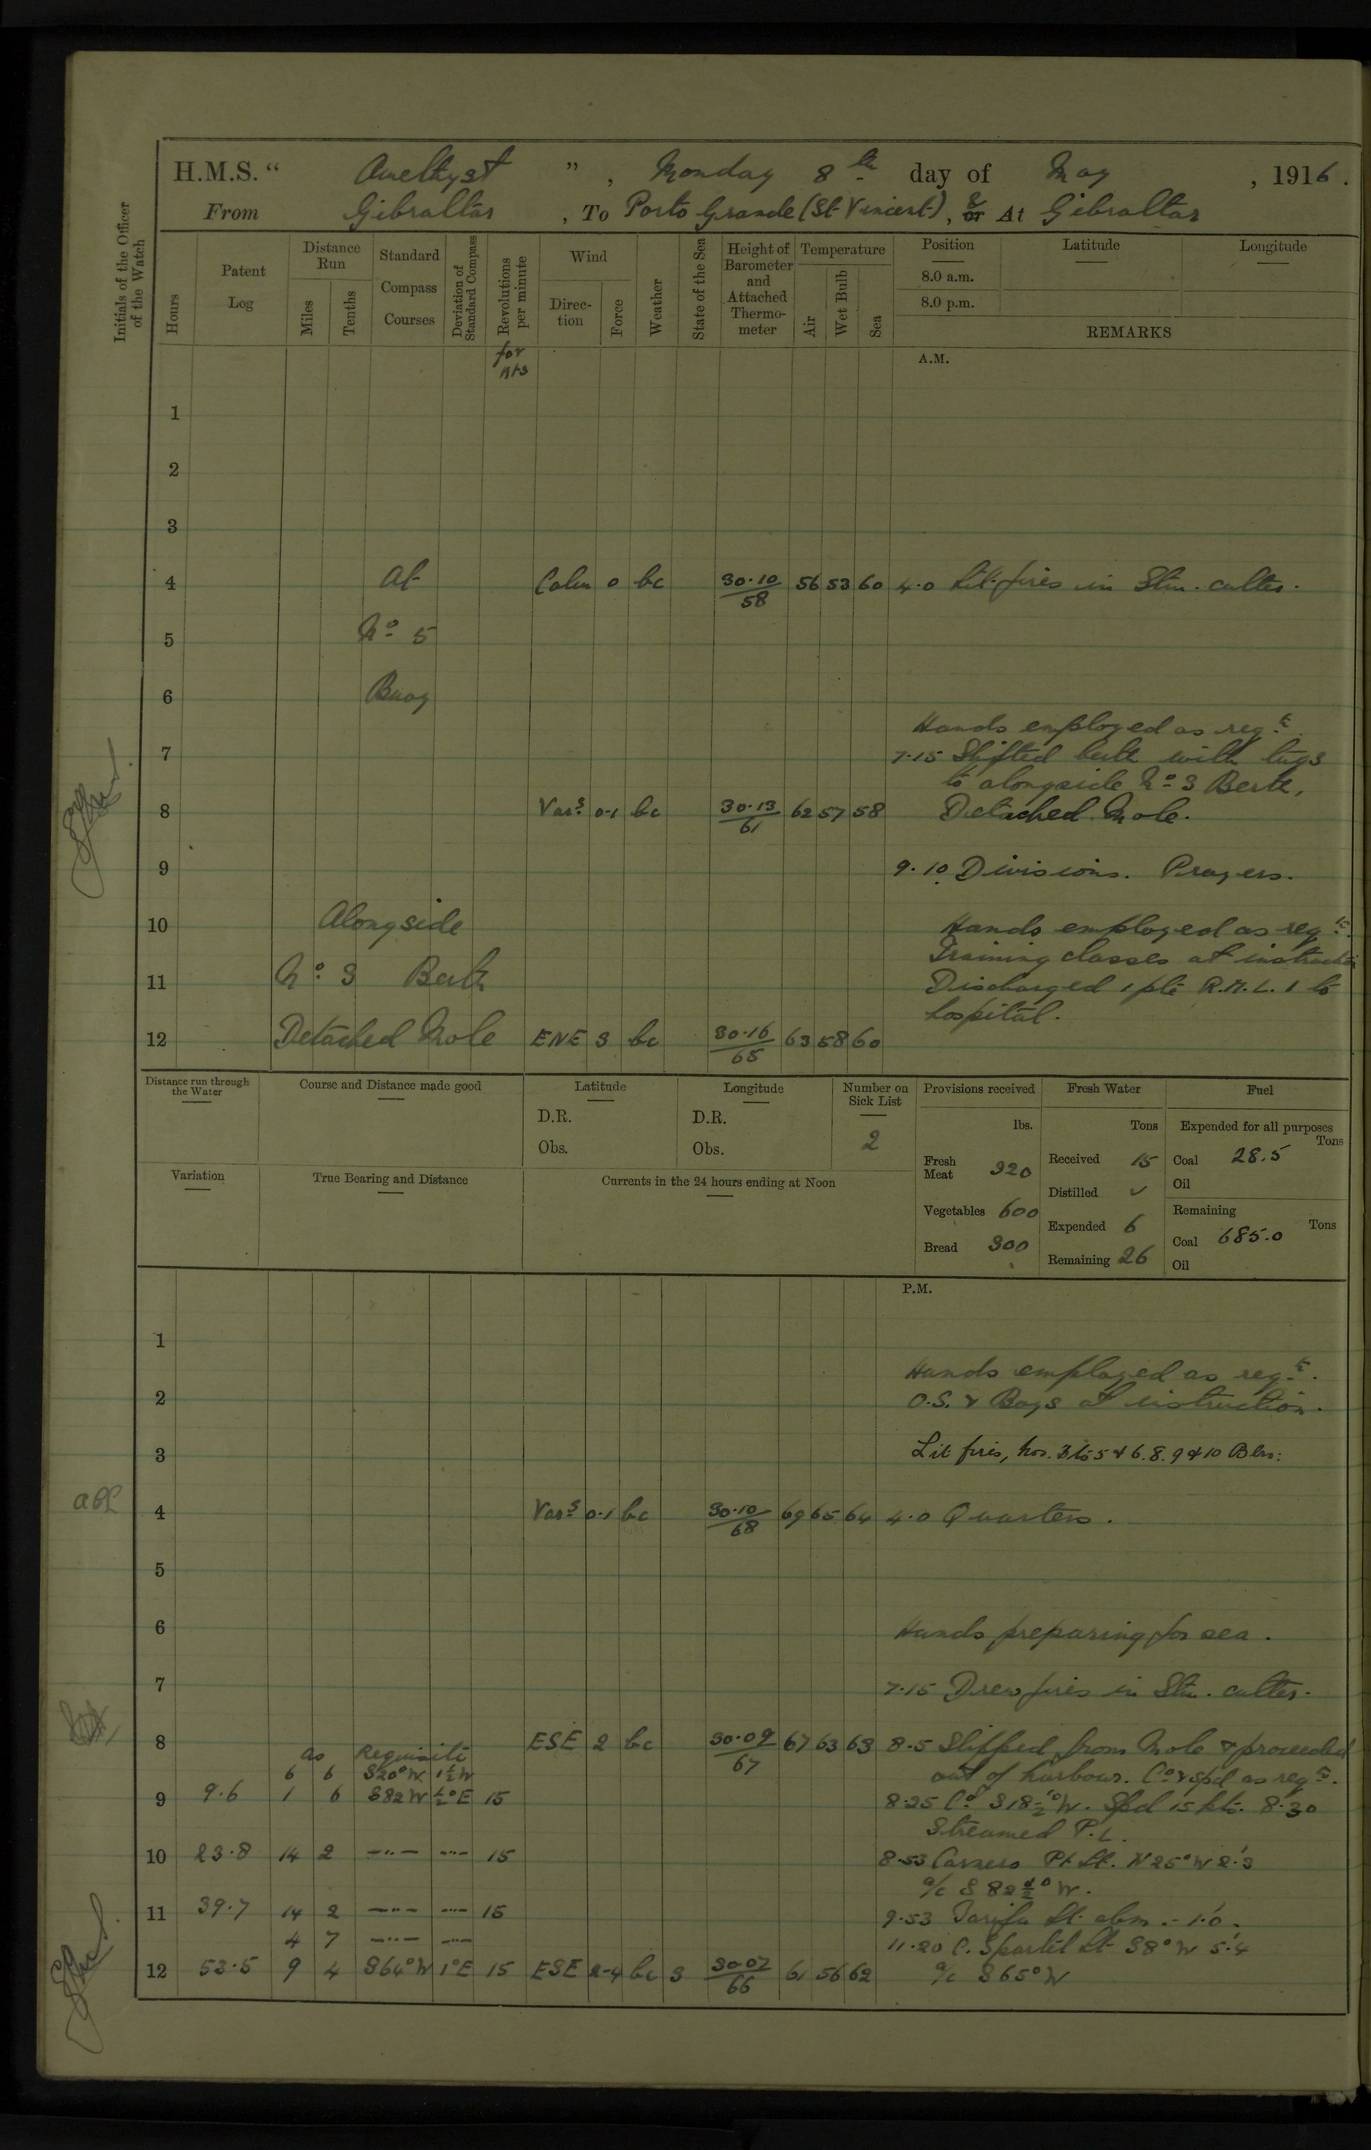 H.M.S. “ Amethyst ” , Monday 8th day of May , 1916 .
From Gibraltar , To Porto Grande (St Vincent) , & or At Gibraltar
Initials of the Officer of the Watch
Hours
Patent Log
Distance Run
Miles
Tenths
Standard Compass Courses
Deviation of Standard Compass
Revolutions per minute
for kts
Wind
Direction
Force
Weather
State of the Sea
Height of Barometer and Attached Thermometer
Temperature
Air
Wet Bulb
Sea
Position
Latitude
Longitude
8.0 a.m.
8.0 p.m.
REMARKS
A.M.
1
2
3
4 At Calm 0 bc 30.10/58 56 53 60 4.0 Lit fires in Stm. cutter.
5 No 5
6 Buoy
Hands employed as reqte.
7 7.15 Shifted berth with tugs
to alongside No 3 Berth,
8 Vars 0-1 bc 30.13/61 62 57 58 Detached Mole.
9 9.10 Divisions. Prayers.
10 Alongside Hands employed as reqte.
Training classes at instruction
11 No 3 Berth Discharged 1 pte R.M.L.I to
hospital.
12 Detached Mole ENE 3 bc 30.16/65 63 58 60
Distance run through the Water
Course and Distance made good
Latitude
D.R.
Obs.
Longitude
D.R.
Obs.
Number on Sick List
2
Variation
True Bearing and Distance
Currents in the 24 hours ending at Noon
Provisions received
lbs.
Fresh Meat 320
Vegetables 600
Bread 300
Fresh Water
Tons
Received 15
Distilled ✓
Expended 6
Remaining 26
Fuel
Expended for all purposes
Tons
Coal 28.5
Oil
Remaining
Tons
Coal 685.0
Oil
P.M.
1
Hands employed as reqte.
2 O.S. & Boys at instruction.
3 Lit fires, Nos. 3 to 5 & 6. 8. 9 & 10 Blrs:
4 Vars 0-1 bc 30.10/68 69 65 64 4.0 Quarters.
5
6 Hands preparing for sea.
7 7.15 Drew fires in Stm. cutter.
8 ESE 2 bc 30.09/67 67 63 63 8.5 Slipped from Mole & proceeded
as Requisite
6 6 S20°W 1½W out of harbour. Co & spd as reqte.
9 9.6 1 6 S82W ½°E 15 8.25 Co S18½°W. Spd 15 kts. 8.30
Streamed P.L.
10 23.8 14 2 —"— —"— 15 8.53 Carnero Pt Lt. N25°W 2'.3
a/c S 82½° W.
11 39.7 14 2 —"— —"— 15 9.53 Tarifa Lt. abm. - 1'.0.
4 7 —"— —"— 11.20 C. Spartel Lt S8°W 5'.4
12 53.5 9 4 S64°W 1°E 15 ESE 2-4 bc 3 30.07/66 61 56 62 a/c S65°W